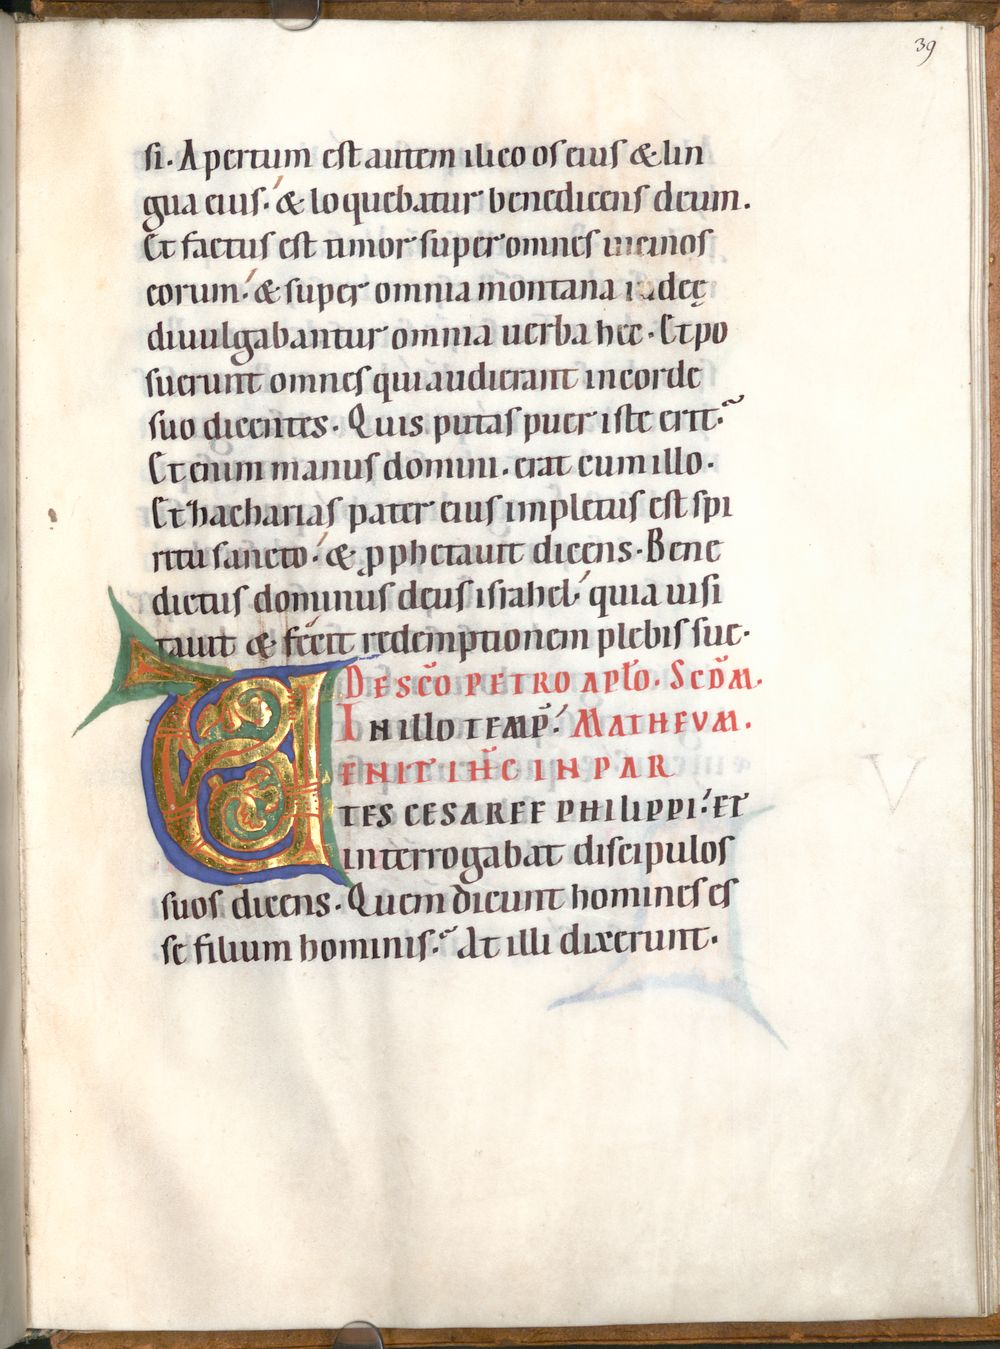 39
si. Apertum est autem ilico os eius & lin
gua eius. & loquebatur benedicens deum.
Et factus est timor super omnes uicinos
eorum. & super omnia montana iudeę
diuulgabantur omnia uerba hec. Et po
suerunt omnes qui audierant in corde
suo dicentes. Quis putas puer iste erit?
Et enim manus domini. erat cum illo.
Et zacharias pater eius impletus est spi
ritu sancto. & ꝓphetauit dicens. Bene
dictus dominus deus israhel. quia uisi
tauit & fecit redemptionem plebis sue.
DE SC̄O PETRO APL̄O. SCD̄M.
IN ILLO TEMP̄. MATHEVM.
VENIT IH̄C IN PAR
TES CESAREE PHILIPPI. ET
interrogabat discipulos
suos dicens. Quem dicunt homines es
se filium hominis? At illi dixerunt.